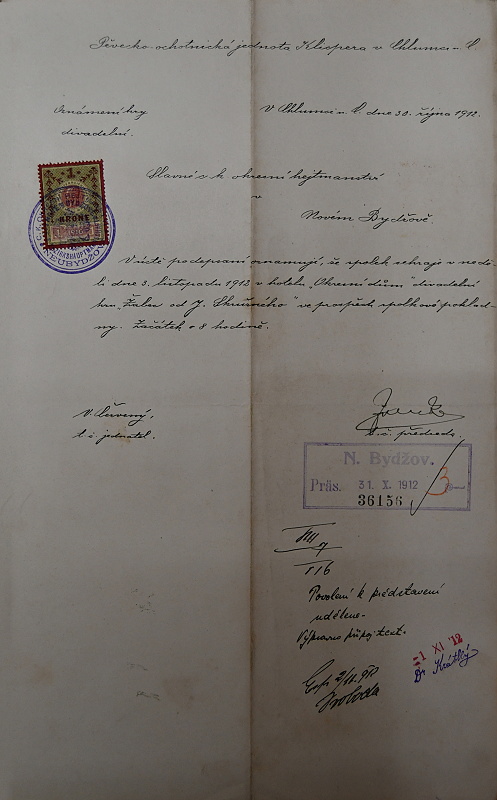 Pěvecko-ochotnická jednota Klicpera v Chlumci n. C.
Oznámení hry
divadelní.
V Chlumci n. C. dne 30. října 1912.
Slavné c k okresní hejtmanství
v
Novém Bydžově.
1
KRONE
NEUBYDŽOV
V úctě podepsaní oznamují, že spolek sehraje v nedě-
li dne 3. listopadu 1912 v hotelu „Okresní dům" divadelní
hru „Žalen od J. Skružného" ve prospěch spolkové poklad-
ny. Začátek o 8 hodině.
V. Červený,
t. č. jednatel.
t. č. předseda.
N. Bydžov.
Präs. 31. X. 1912 3
36156
VIII
9
116
Povolení k představení
uděleno.
Vypraveno
2/11. 912
Svoboda
-1 XI '12
Dr Krátký